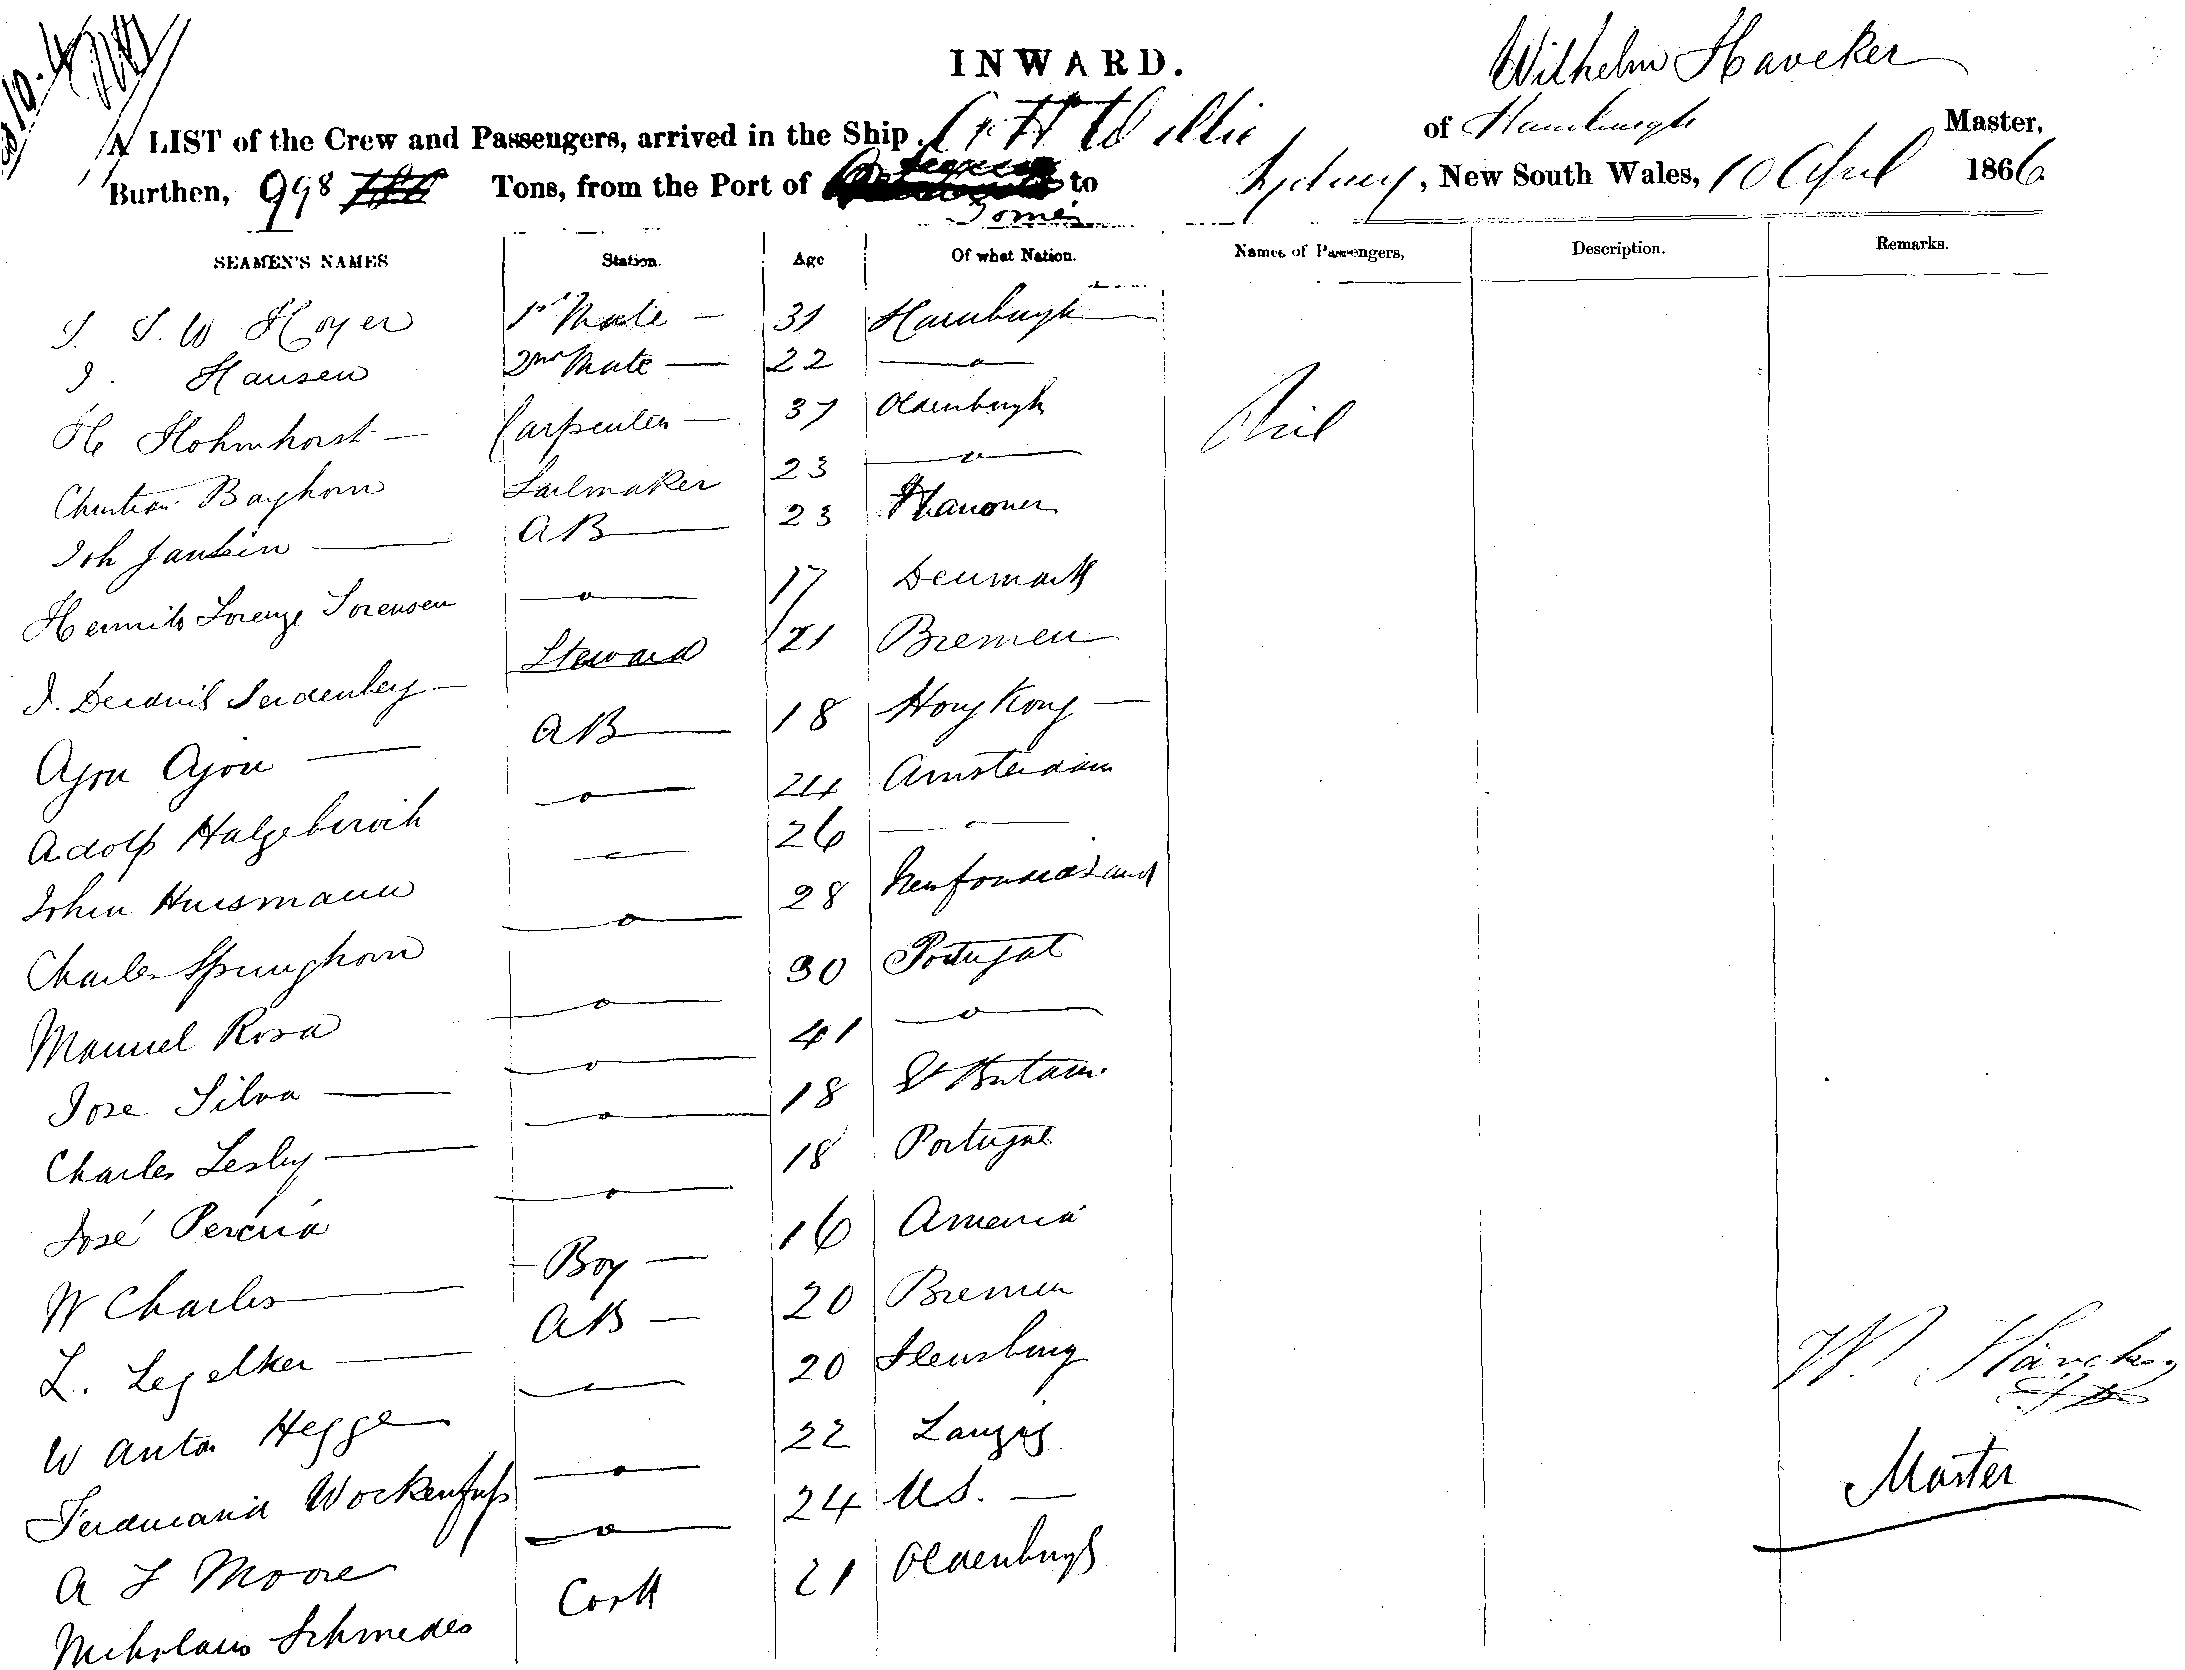 INWARD.
Wilhelm Haveker
A LIST of the Crew and Passengers, arrived in the Ship C & H Willie of Hamburgh Master,
Burthen, 998 Tons, from the Port of to Sydney, New South Wales, 10 April 1866
Tomé
SEAMEN'S NAMES Station. Age Of what Nation. Names of Passengers, Description. Remarks.
J. J. W Hoyer 1st Mate — 31 Hamburgh
J. Hansen 2nd Mate — 22 — o —
H Hohmhorst — Carpenter — 37 Oldenburgh Nil
Christian Bayhorn Sailmaker 23 — o —
Joh Jansen — AB — 23 Hanover
Lorenz Sorensen — o — 17 Denmark
J. Steward 21 Bremen
Ajou Ajou — AB — 18 Hong Kong —
Adolf — o — 24 Amsterdam
John Huismann — o — 26 — o —
Charles Springhorn — o — 28 Newfoundland
Manuel Rosa — o — 30 Portugal
Jose Silva — — o — 41 — o —
Charles Lesley — — o — 18 Gt Britain
José Pereria — o — 18 Portugal
W Charles — Boy — 16 America
L. Legelker — AB — 20 Bremen
W Anton Hegge — o — 20 Flensburg
Ferdinand Wockenfuss — o — 22
A F Moore — o — 24 U.S. —
Nikolaus Schmedes Cook 21 Oldenburgh
W. Häveker
Master